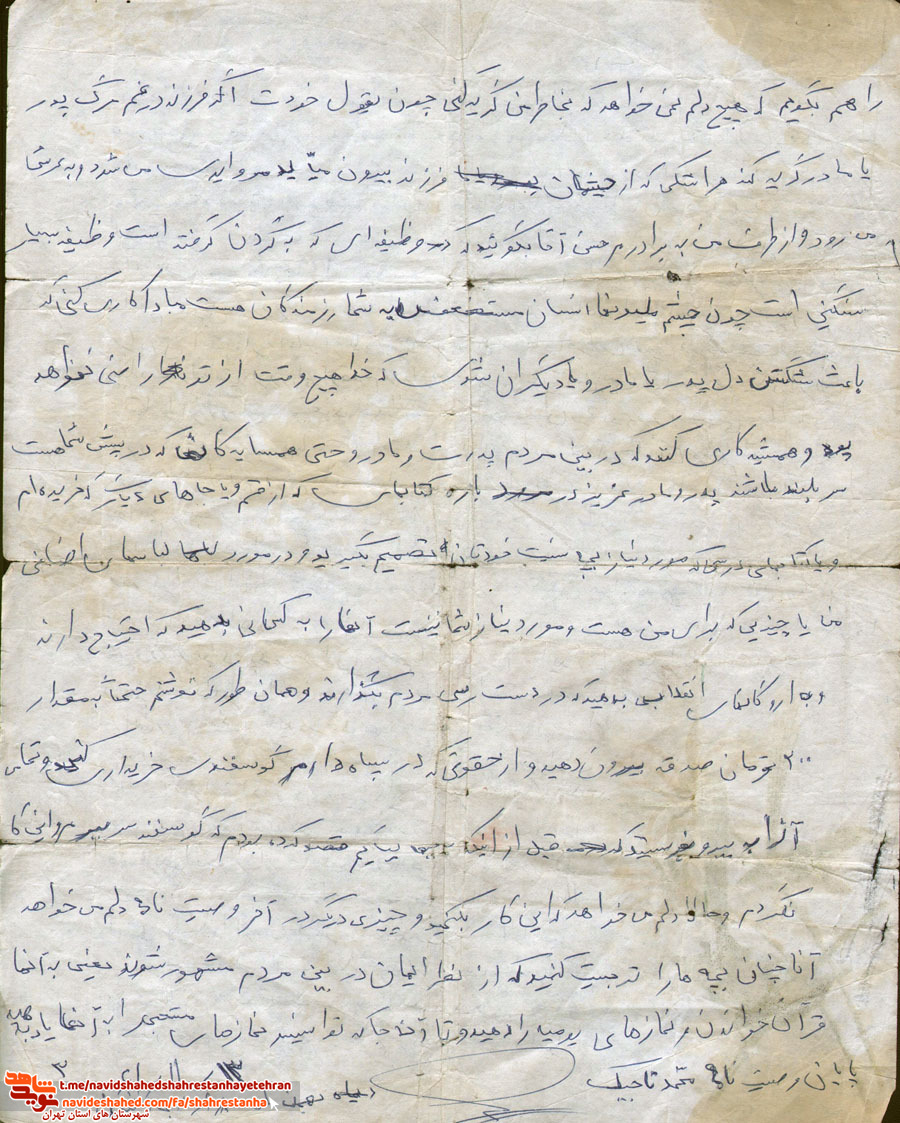 را هم بگویم که هیچ دلم نمی خواهد که بخاطر من گریه کنی چون بقول خودت اگر فرزند در غم مرگ پدر
یا مادر گریه کند هر اشکی که از چشمان فرزند بیرون میآید مرواریدی می شود و به عرش
می رود و از طرف من به برادرم حسن آقا بگوئید که وظیفه ای که به گردن گرفته است وظیفه بسیار
سنگینی است چون چشم انسان مستضعف به شما رزمندگان هست مبادا کاری کنی که
باعث شکستن دل پدر یا مادر و یا دیگران شوی که خدا هیچ وقت از تو راضی نخواهد
بود و همیشه کاری کند که در بین مردم پدرت و مادر و حتی همسایه که در پیش شماست
سر بلند باشند پدر و مادر عزیز در باره کتابهای که از قم و یا جاهای دیگر که خریده ام
و یا کتابهای درسی که مورد نیاز بچه نیست خودتان تصمیم بگیرید و در مورد لباسهای اضافی
من یا چیزیکه برای من هست و مورد نیاز شما نیست آنها را به کسانی بدهید که احتیاج دارند
و به ارگانهای انقلابی بدهید که در دست رس مردم بگذارند و همان طور که نوشتم حتماً به مقدار
۲۰۰ تومان صدقه بیرون دهید و از حقوقی که در سپاه دارم گوسفندی خریداری کنید و تمامی
آنرا بفرستید که قبل از اینکه بیایم قصد کرده بودم که گوسفند سر ببرم ولی
نکردم و حالا دلم می خواهد که این کار بکنید و چیزی دیگر در آخر وصیت نامه دلم می خواهد
آنچنان بچه ها را تربیت کنید که از نظر ایمان در بین مردم مشهور شوند یعنی به آنها
قرآن خواندن و نمازهای یومیه را دهید و تا آنجا که توانستید نمازهای مستحبی را به آنها یاد بدهید
پایان وصیت نامه محمد تاجیک
شاهد
نوید
t.me/navidshahedshahrestanhayetehran
navideshahed.com/fa/shahrestanha
شهرستان های استان تهران